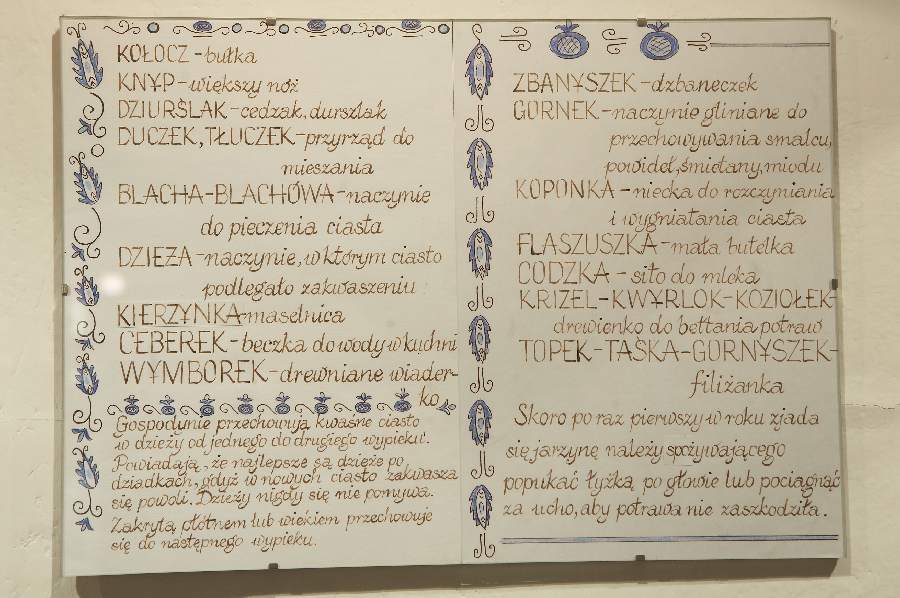 KOŁOCZ - bułka
KNYP - większy nóż
DZIURŚLAK - cedzak, durszlak
DUCZEK, TŁUCZEK - przyrząd do
mieszania
BLACHA - BLACHÓWA - naczynie
do pieczenia ciasta
DZIEŻA - naczynie, w którym ciasto
podlegało zakwaszeniu
KIERZYNKA - maselnica
CEBEREK - beczka do wody w kuchni
WYMBOREK - drewniane wiader-
ko
Gospodynie przechowują kwaśne ciasto
w dzieży od jednego do drugiego wypieku.
Powiadają, że najlepsze są dzieże po
dziadkach, gdyż w nowych ciasto zakwasza
się powoli. Dzieży nigdy się nie pomywa.
Zakrytą płótnem lub wiekiem przechowuje
się do następnego wypieku.
ZBANYSZEK - dzbaneczek
GORNEK - naczynie gliniane do
przechowywania smalcu,
powideł, śmietany, miodu
KOPONKA - niecka do rozczyniania
i wygniatania ciasta
FLASZUSZKA - mała butelka
CODZKA - sito do mleka
KRIZEL - KWYRLOK - KOZIOŁEK -
drewienko do bełtania potraw
TOPEK - TAŚKA - GORNYSZEK -
filiżanka
Skoro po raz pierwszy w roku zjada
się jarzynę należy spożywającego
popukać łyżką po głowie lub pociągnąć
za ucho, aby potrawa nie zaszkodziła.